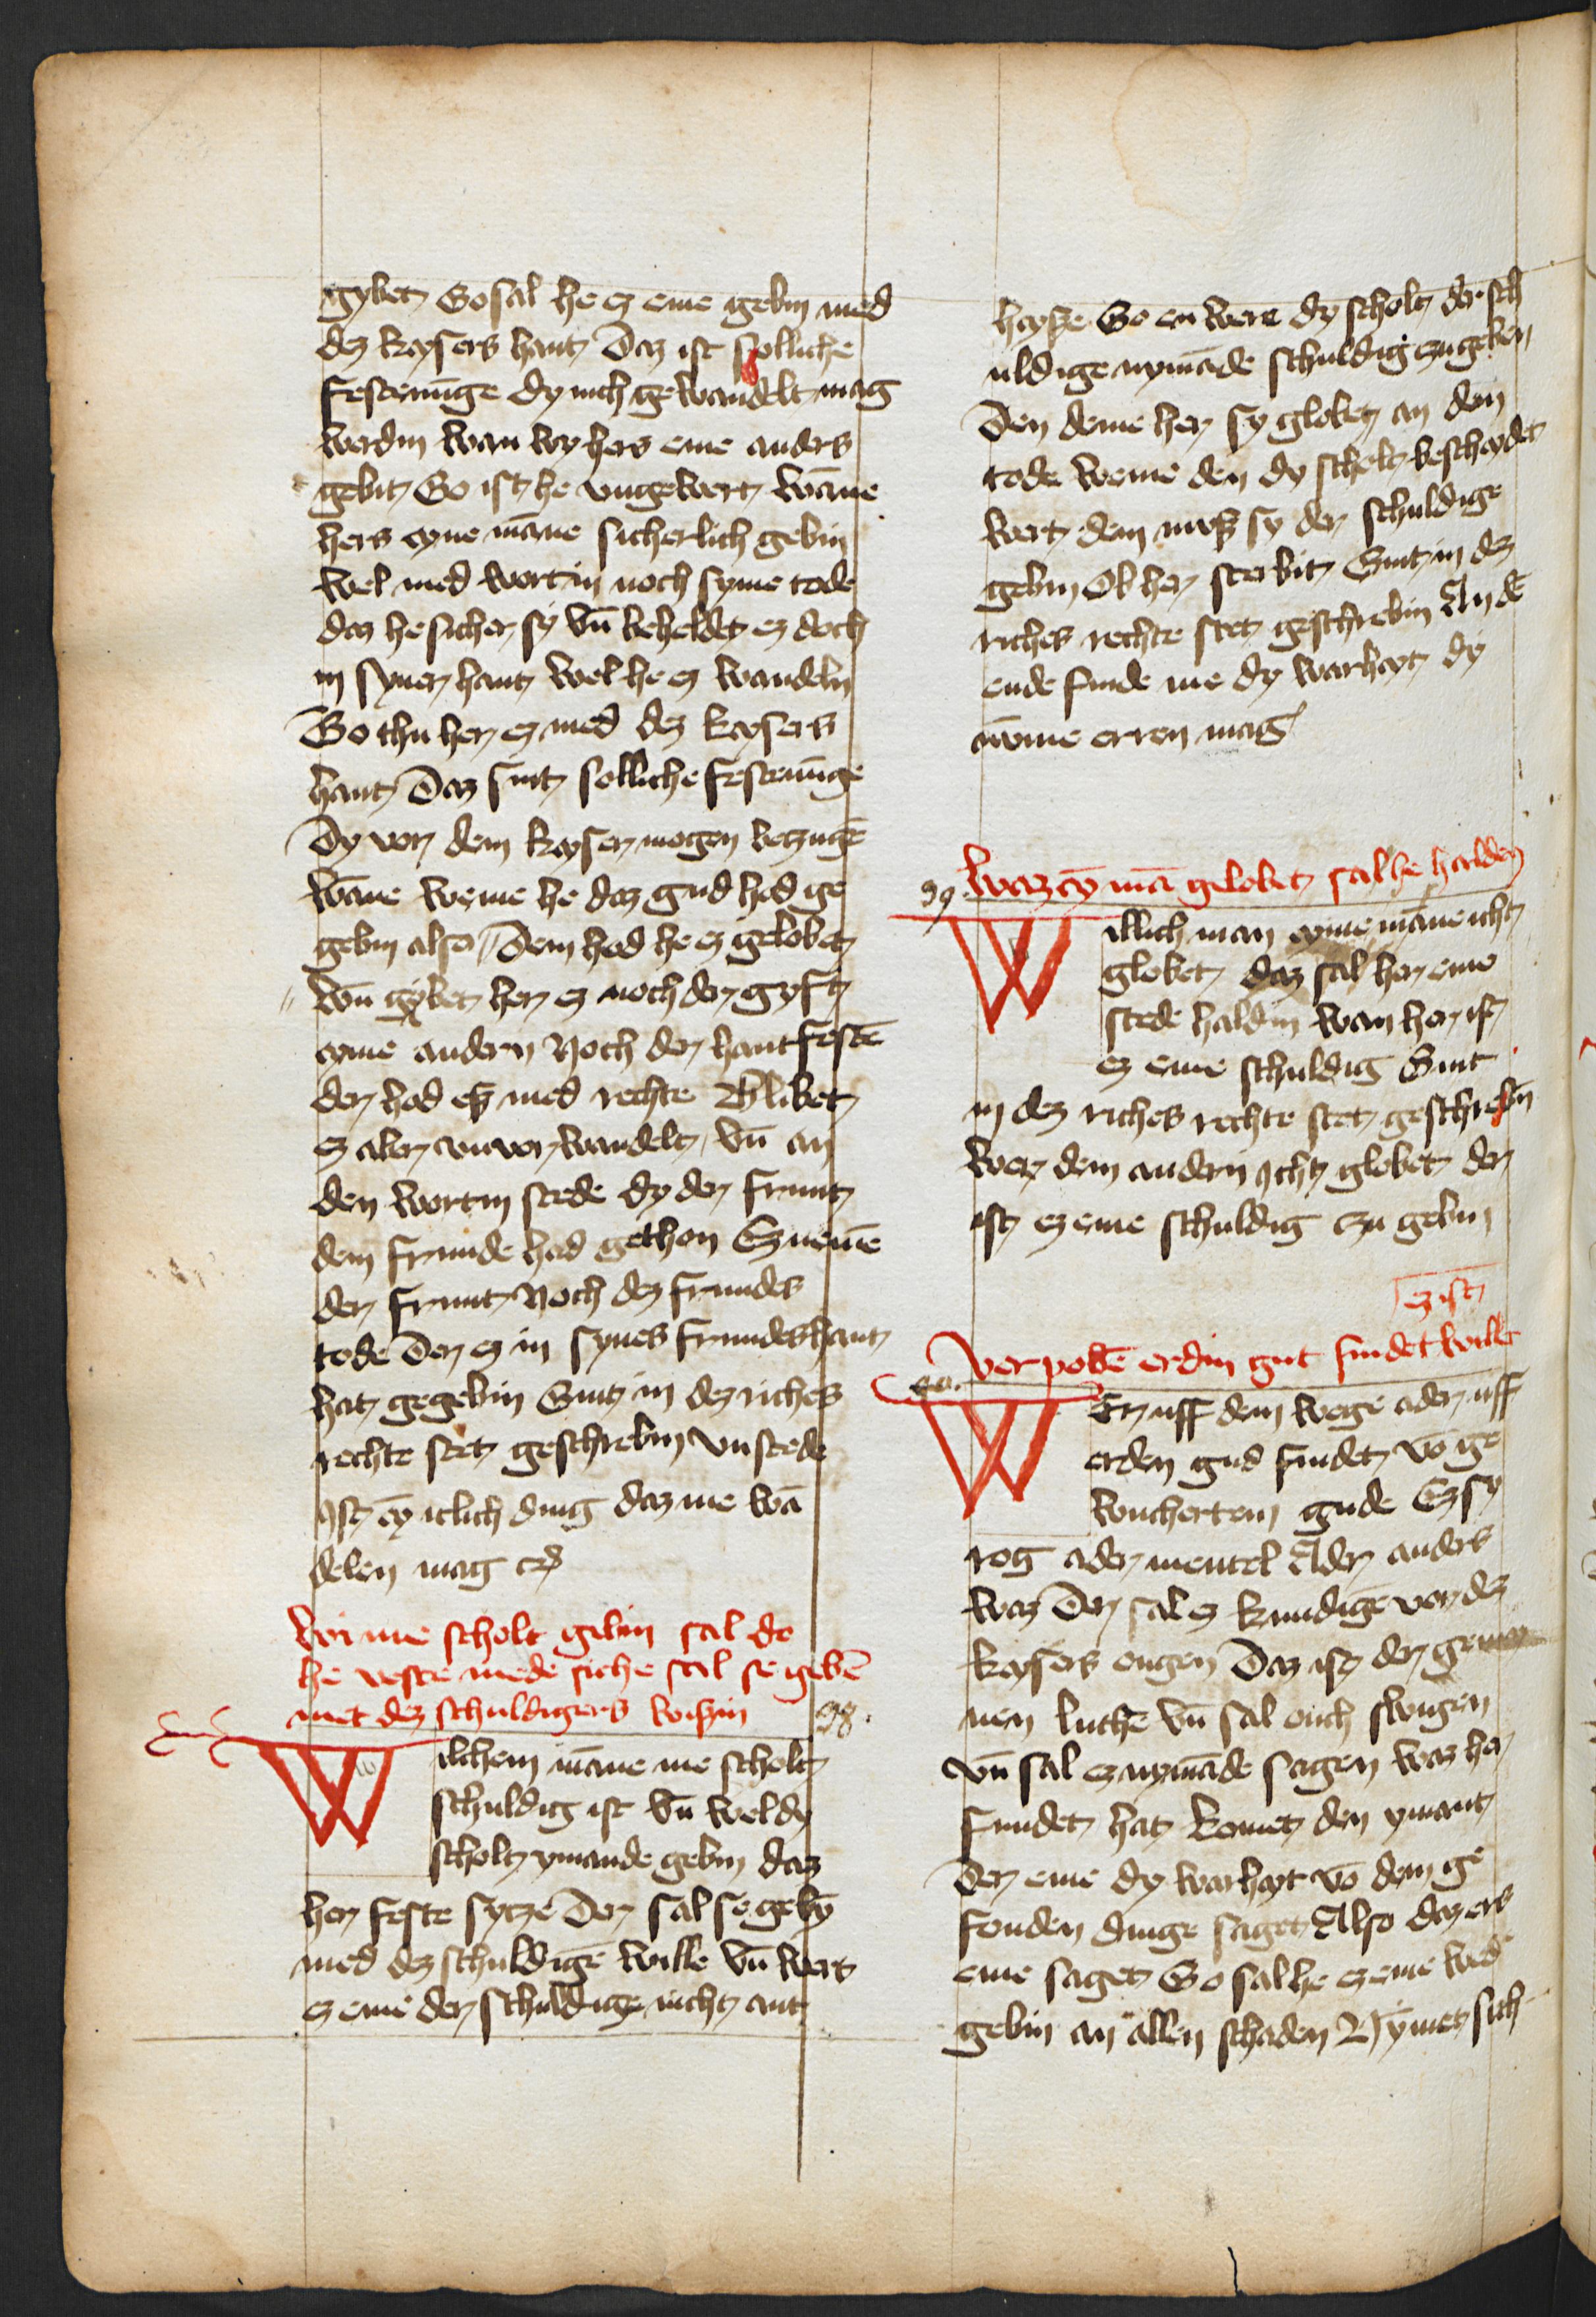 gybet So sal he ez eme gebin med
dez keysers hant Daz ist solliche
festenūge dy nich gewandelt mag
werdin wan wy hers eme anders
gebit So ist he ungewert wāne
hers eyne māne sicherlich gebin
wel med wortin noch syme tode
daz he sicher sy vn̄ beheldet ez doch
in syner hant wel he ez wandeln
So thu her ez med dez keysers
hant Daz sint solliche festenūge
Dy vor dem keyser mogen betzugē
wāne weme he daz gud hod ge
gebin also Dem hod he ez gelobet
wn̄ gybet her ez noch der gyft
eyme andern Noch der hantfestē
der hod eß med rechte Blibet
ez aber unvorwandelt vn̄ an
den wortin stede dy der frunt
dem frunde hod gethon Ez nemē
der frunt Noch dez frundes
tode Der ez in synes frundes hant
hat gegebin Sint in dez riches
rechte stet geschrebin unstede
Ist ey iclich ding daz me wā
delen mag
wi me scholt gebin sal do
he veste mede siche sal se gebē
met dez schuldigers wißin 98.
Wilchem māne me scholt
schuldig ist vn̄ wel dy
scholt ymande gebin daz
her feste sytze Der sal se gebȳ
med dez schuldigē wille vn̄ wert
ez eme der schuldige nicht ant
heyße So en were dy scholt der sch
uldige nymāde schuldig czu geben
Den deme her sy globet an den
tode weme den dy scholt bescheydet
wert dem muß sy der schuldige
gebin Ob her sterbit Sint in dez
riches rechte stet geschrebin An dē
ende finde me dy warheyt dy
nymme erren mag
99. waz ey mā gelobet sal he halden
Willich man eyme māne icht
globet daz sal her eme
stede haldin wan her ist
ez eme schuldig Sint
in dez riches rechte stet geschrebin
wer dem andern Icht globet der
ist ez eme schuldig czu gebin
ez ist
wer pobē erdin gut findet wille
WEr uff dem wege ader uff
erden gud findet vō ge
wuchertem gude Ez sy
rog ader mentel Ader anders
waz Der sal ez kundigē vor dez
keysers ougen Daz ist der gemey
nen luthē vn̄ sal ouch swigen
vn̄ sal ez nymāde sagen waz her
fundet hat komet den ymant
Der eme dy warheyt vō dem ge
fonden dinge saget Also daz ers
eme saget So sal he ez eme wed
gebin an allen schaden Nymet sich